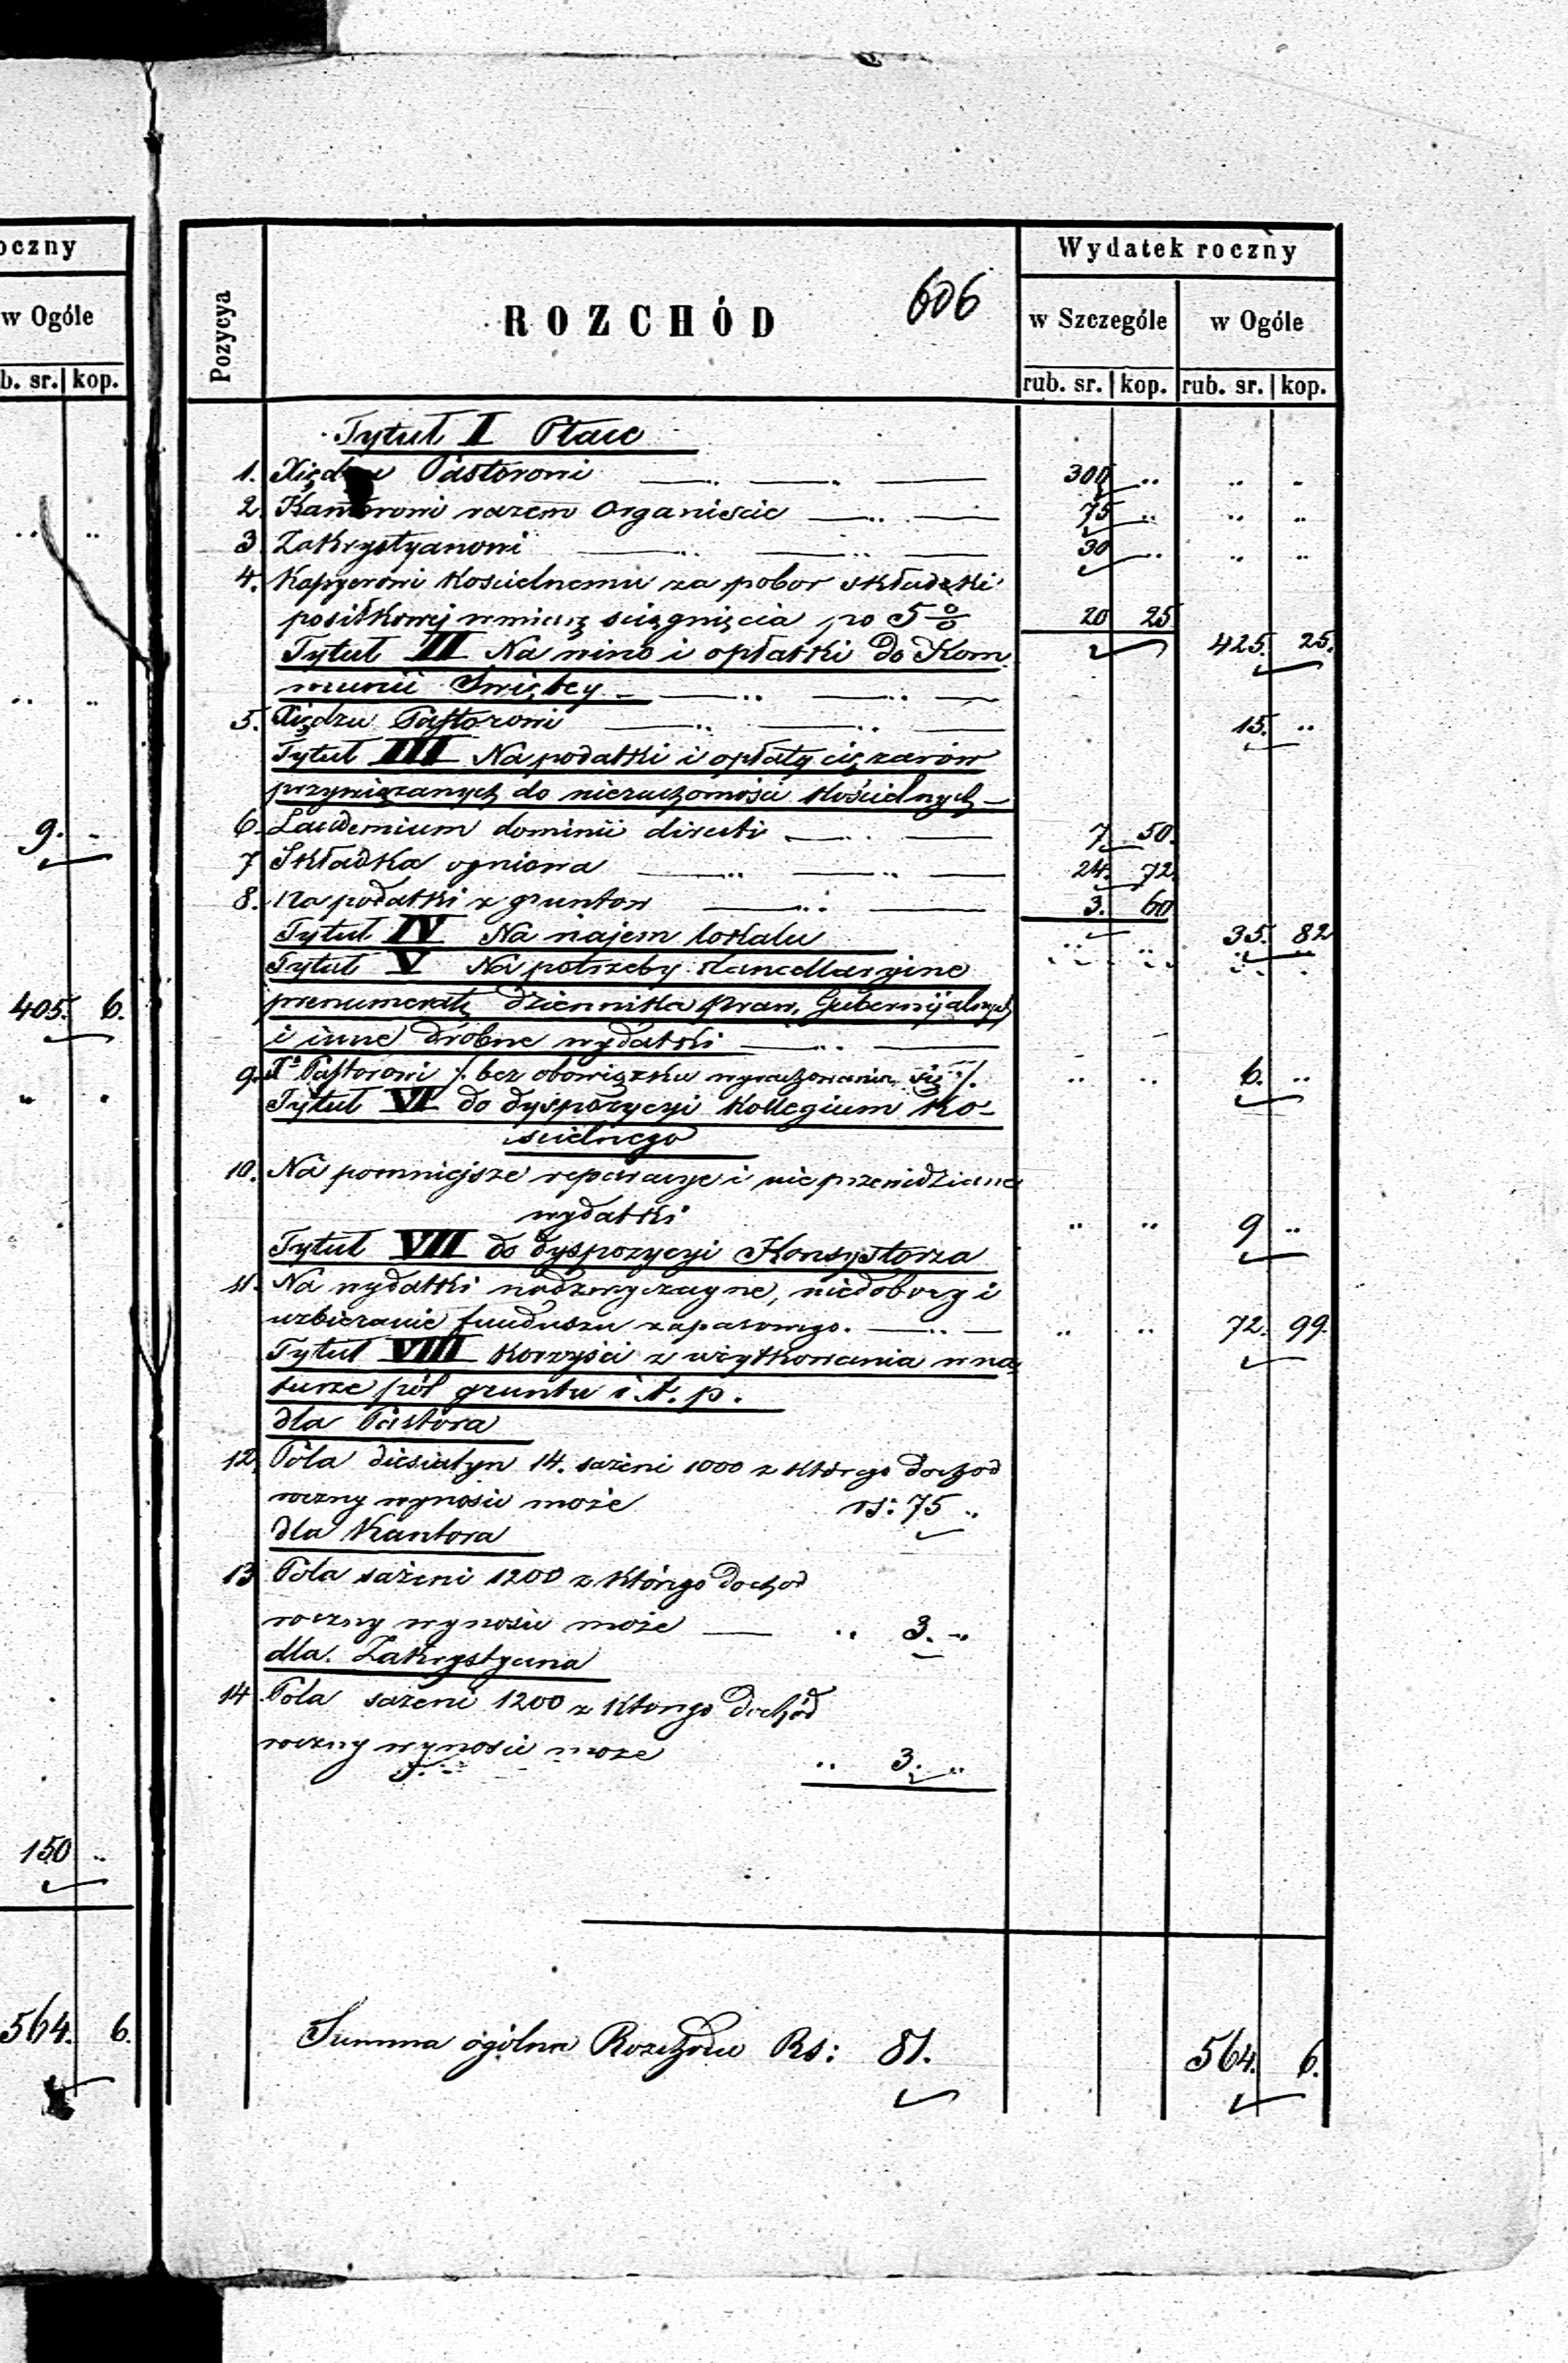 oczny
w Ogóle
b. sr. kop.
9.
405. 6.
150
564. 6.
606
Pozycya
ROZCHÓD
Wydatek roczny
w Szczególe w Ogóle
rub. sr. kop. rub. sr. kop.
Tytuł I Płace
1. Xiędzu Pastorowi 300
2. Kantorowi razem Organiście 75
3. Zakrystyanowi 30
4. Kassyerowi Kościelnemu za pobor składki
posiłkowej w miarę sciągnięcia po 5 % 20 25
425. 25.
Tytuł II Na wino i opłatki do Kom
munii Swiętey
5. Xiędzu Pastorowi 15.
Tytuł III Na podatki i opłaty ciężarow
przywiązanych do nieruchomości Kościelnych
6. Laudemium dominii directi 7. 50.
7 Składka ogniowa 24. 72.
8. Na podatki z gruntow 3. 60
35. 82
Tytuł IV Na najem lokalu
Tytuł V Na potrzeby kancellaryjne
prenumeratę dziennika praw, Gubernijalnych
i inne drobne wydatki
9. Xº Pastorowi /. bez obowiązku wyrachowania się ./. 6.
Tytuł VI do dyspozycyi Kollegium Ko-
scielnego
10. Na pomniejsze reparacye i nieprzewidziane
wydatki 9
Tytuł VII do dyspozycyi Konsystorza
11. Na wydatki nadzwyczayne, niedobory i
uzbieranie funduszu zapasowego. 72. 99.
Tytuł VIII Korzyści z użytkowania w na
turze pól gruntu i t. p.
dla Pastora
12. Pola diesiatyn 14. sażeni 1000 z którego dochod
roczny wynosić może rs: 75
dla Kantora
13 Pola sażeni 1200 z którego dochod
roczny wynosić może 3.
dla Zakrystyana
14 Pola sażeni 1200 z ktorego dochód
roczny wynosić może 3.
Summa ogólna Rozchodu Rs: 81. 564. 6.